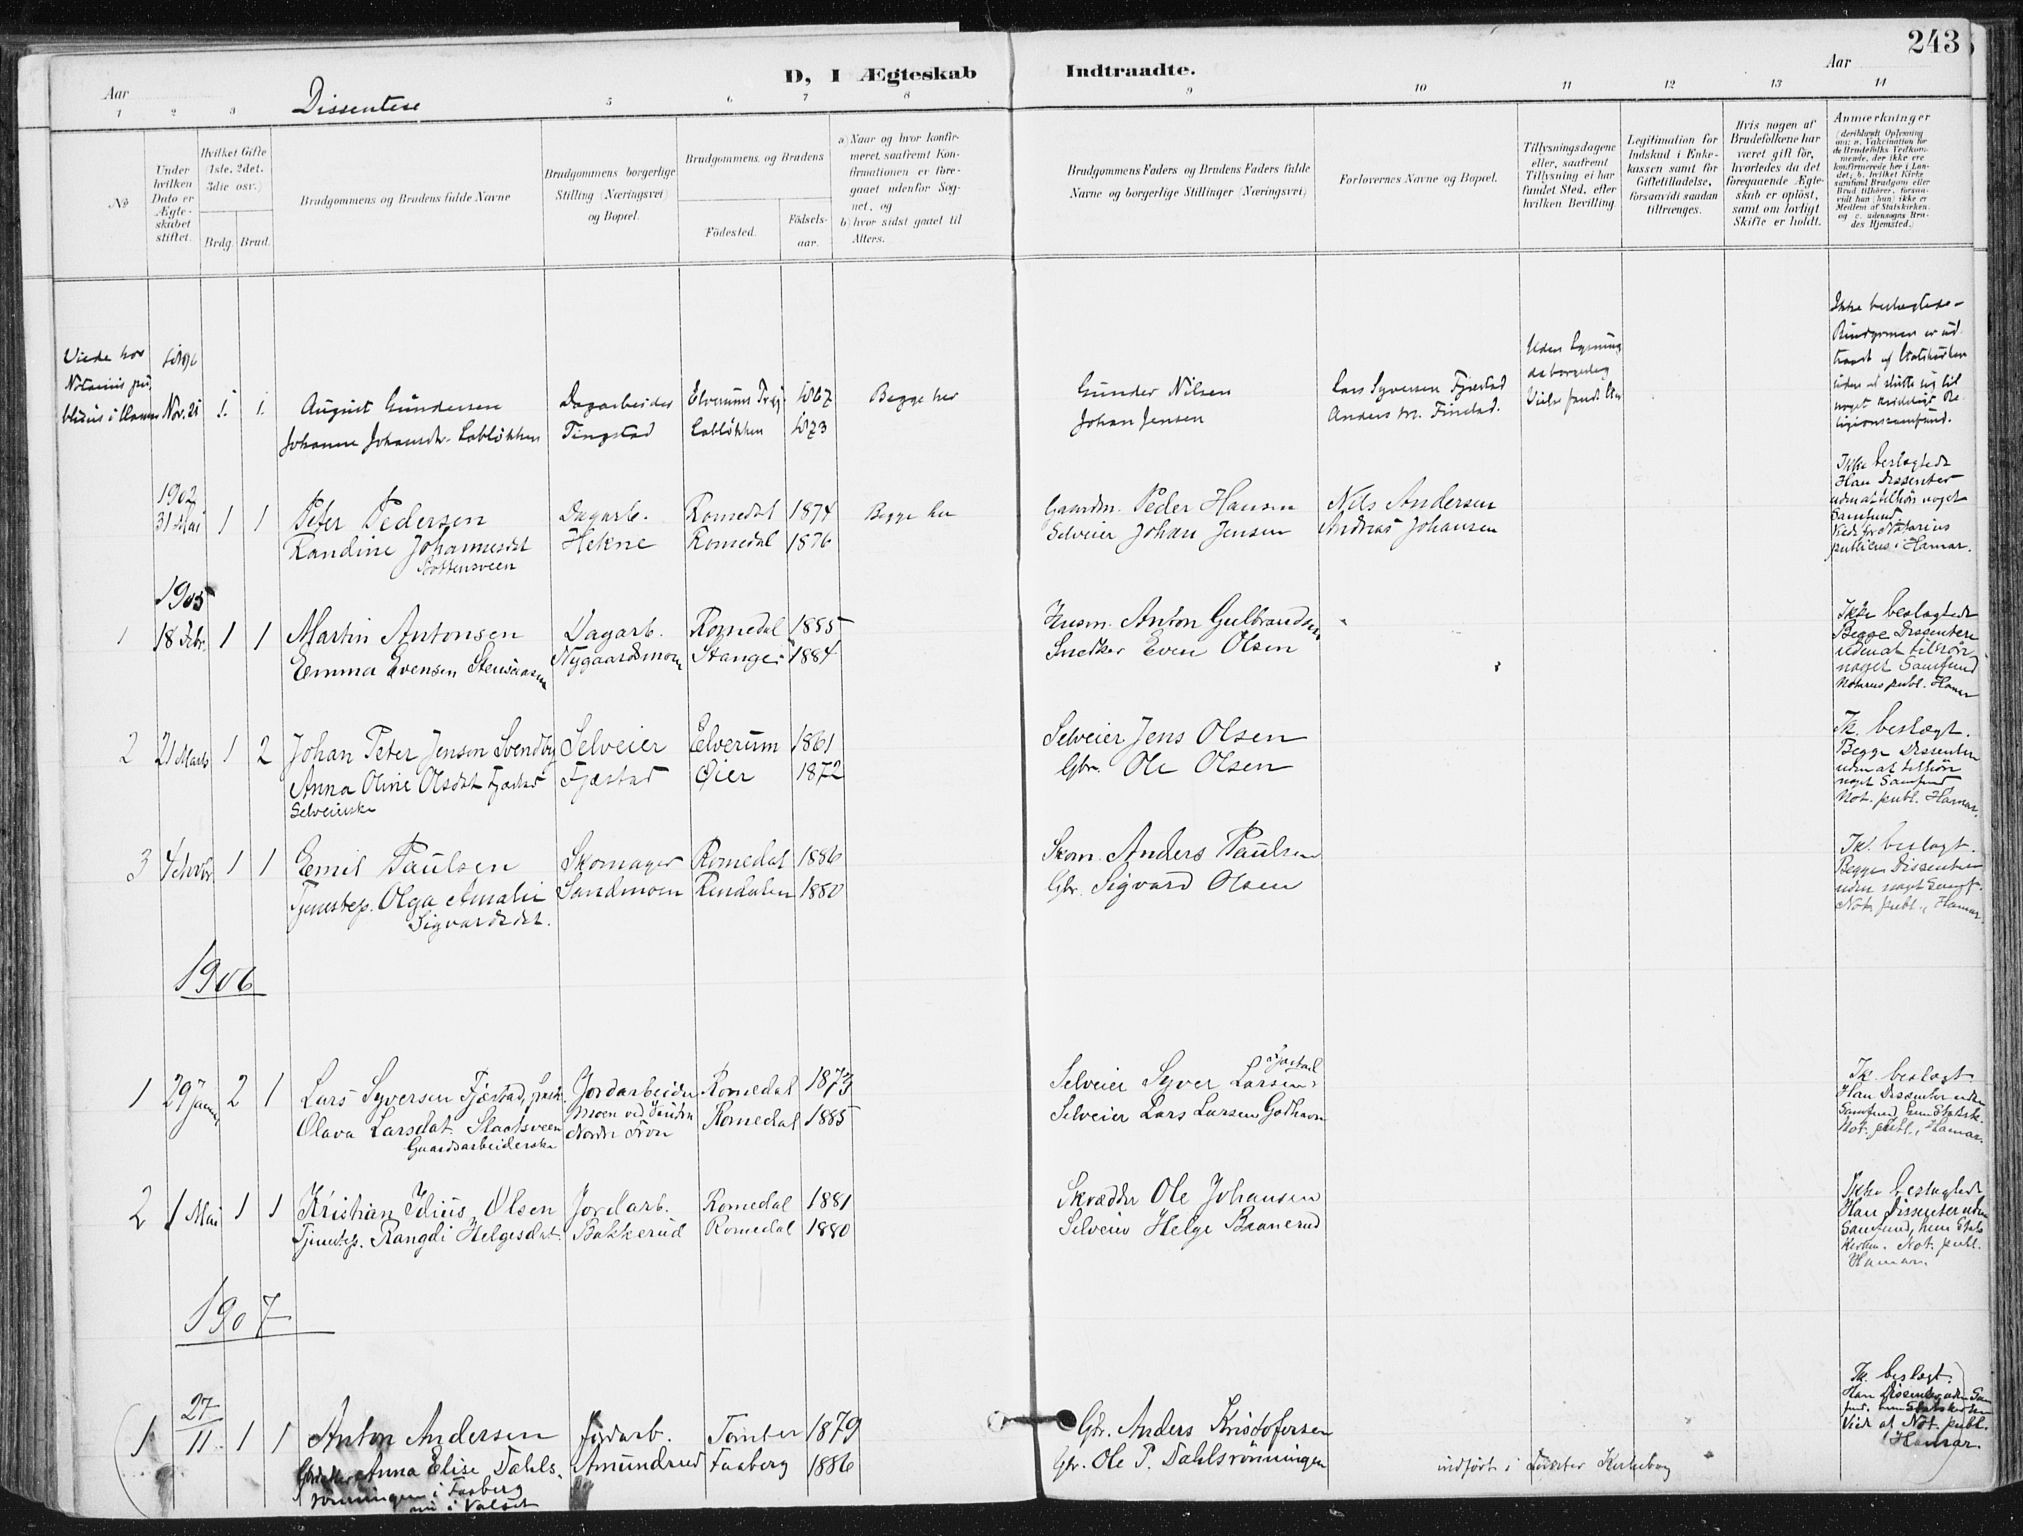 243
D, I Ægteskab Indtraadte.
Aar
Aar
Dissentere
1 2 3 5 6 7 8 9 10 11 12 13 14
No
Under hvilken Dato er Ægteskabet stiftet.
Hvilket Gifte (1ste, 2det, 3die osv.)
Brdg. Brud.
Brudgommens og Brudens fulde Navne
Brudgommens borgerlige Stilling (Næringsvei) og Bopæl.
Brudgommens og Brudens
Födested.
Födselsaar.
a) Naar og hvor konfirmeret, saafremt Konfirmationen er foregaaet udenfor Sognet, og
b) hvor sidst gaaet til Alters.
Brudgommens Faders og Brudens Faders fulde Navne og borgerlige Stillinger (Næringsvei)
Forlovernes Navne og Bopæl.
Tillysningsdagene eller, saafremt Tillysning ei har fundet Sted, efter hvilken Bevilling
Legitimation for Indskud i Enkekassen samt for Giftetilladelse, forsaavidt saadan tiltrænges.
Hvis nogen af Brudefolkene har været gift för, hvorledes da det foregaaende Ægteskab er oplöst, samt om lovligt Skifte er holdt.
Anmærkninger
(deriblandt Oplysning om: a. Vakcination for de Brudefolks Vedkommende, der ikke ere konfirmerede her i Landet; b. hvilket Kirkesamfund Brudgom eller Brud tilhörer, forsaavidt han (hun) ikke er Medlem af Statskirken, og c. udensogns Brudes Hjemsted.)
Viede hos
Notarius pu
blicus i Hamar Nov. 21 1. 1. August Gundersen Dagarbeider Elverums 1867 Begge her Gunder Nilsen Lars Syversen Fjæstad
Johanne Johansdt. Labløkken Tingstad Labløkken 1873 Johan Jensen Anders M. Finstad.
Ikke beslægtede
1902
31 Mai 1 1 Peter Pedersen Dagarb. Romedal 1874 Begge her Gaardm. Peder Hansen Nils Andersen
Randine Johannesdt Hekne Romedal 1876 Selveier Johan Jensen Andreas Johansen
Ikke beslægtede
Han Dissenter
uden at tilhöre noget
Samfund.
Viede fra Notarius
publicus i Hamar.
1905
1 18 Febr. 1 1 Martin Antonsen Dagarb. Romedal 1885 Husm. Anton Gulbrandsen
Emma Evensen Nygaardsmoen Stange 1884 Snedker Even Olsen
Ikke beslægtede
Begge Dissentere
uden at tilhöre
noget Samfund
Notarius publ. Hamar
2 21 Marts 1 2 Johan Peter Jensen Svendby Selveier Elverum 1861 Selveier Jens Olsen
Anna Oline Olsdat Fjæstad Fjæstad Øier 1872 Gbr. Ole Olsen
Selveierske
Ik. beslægt.
Begge Dissentere
uden at tilhöre
noget Samfund
Not. publ. Hamar.
3 1 1 Emil Paulsen Skomager Romedal 1886 Skom. Anders Paulsen
Tjenestep. Olga Amalie Sandmoen Rendalen 1880 Gbr. Sigvard Olsen
Sigvardsdt.
Ik. beslægt.
Begge Dissentere
uden noget Samf.
Not. publ., Hamar.
1906
1 29 Januar 2 1 Lars Syversen Fjæstad, Jordarbeider Romedal 1873 Selveier Syver Larsen Fjæstad
Olava Larsdat. Moen ved Romedal 1885 Selveier Lars Larsen Godhavn
Gaardsarbeiderske Nordre Fron
Ik. beslægt
Han Dissenter uden
Samfund, hun Statsk.
Not. publ., Hamar.
2 1 Mai 1 1 Kristian Julius Olsen Jordarb. Romedal 1881 Skrædder Ole Johansen
Tjenestep. Rangdi Helgesdat. Bakkerud Romedal 1880 Selveier Helge Baanerud
Ikke beslægtede
Han Dissenter uden
Samfund, hun Stats
kirken. Not. publ.
Hamar.
1907
1 27/11 1 1 Anton Andersen Jordarb. Tomter 1879 Gbr. Anders Kristofersen
Anna Elise Dahls- Amundrud Faaberg 1886 Gbr. Ole P. Dahlsrønningen
rønningen i Faaberg
nu i Valset
indført i Kirkebog
Ik. beslægt.
Han Dissenter uden Sam
fund, hun Statskirken
Viede af Not. publ.
Hamar.